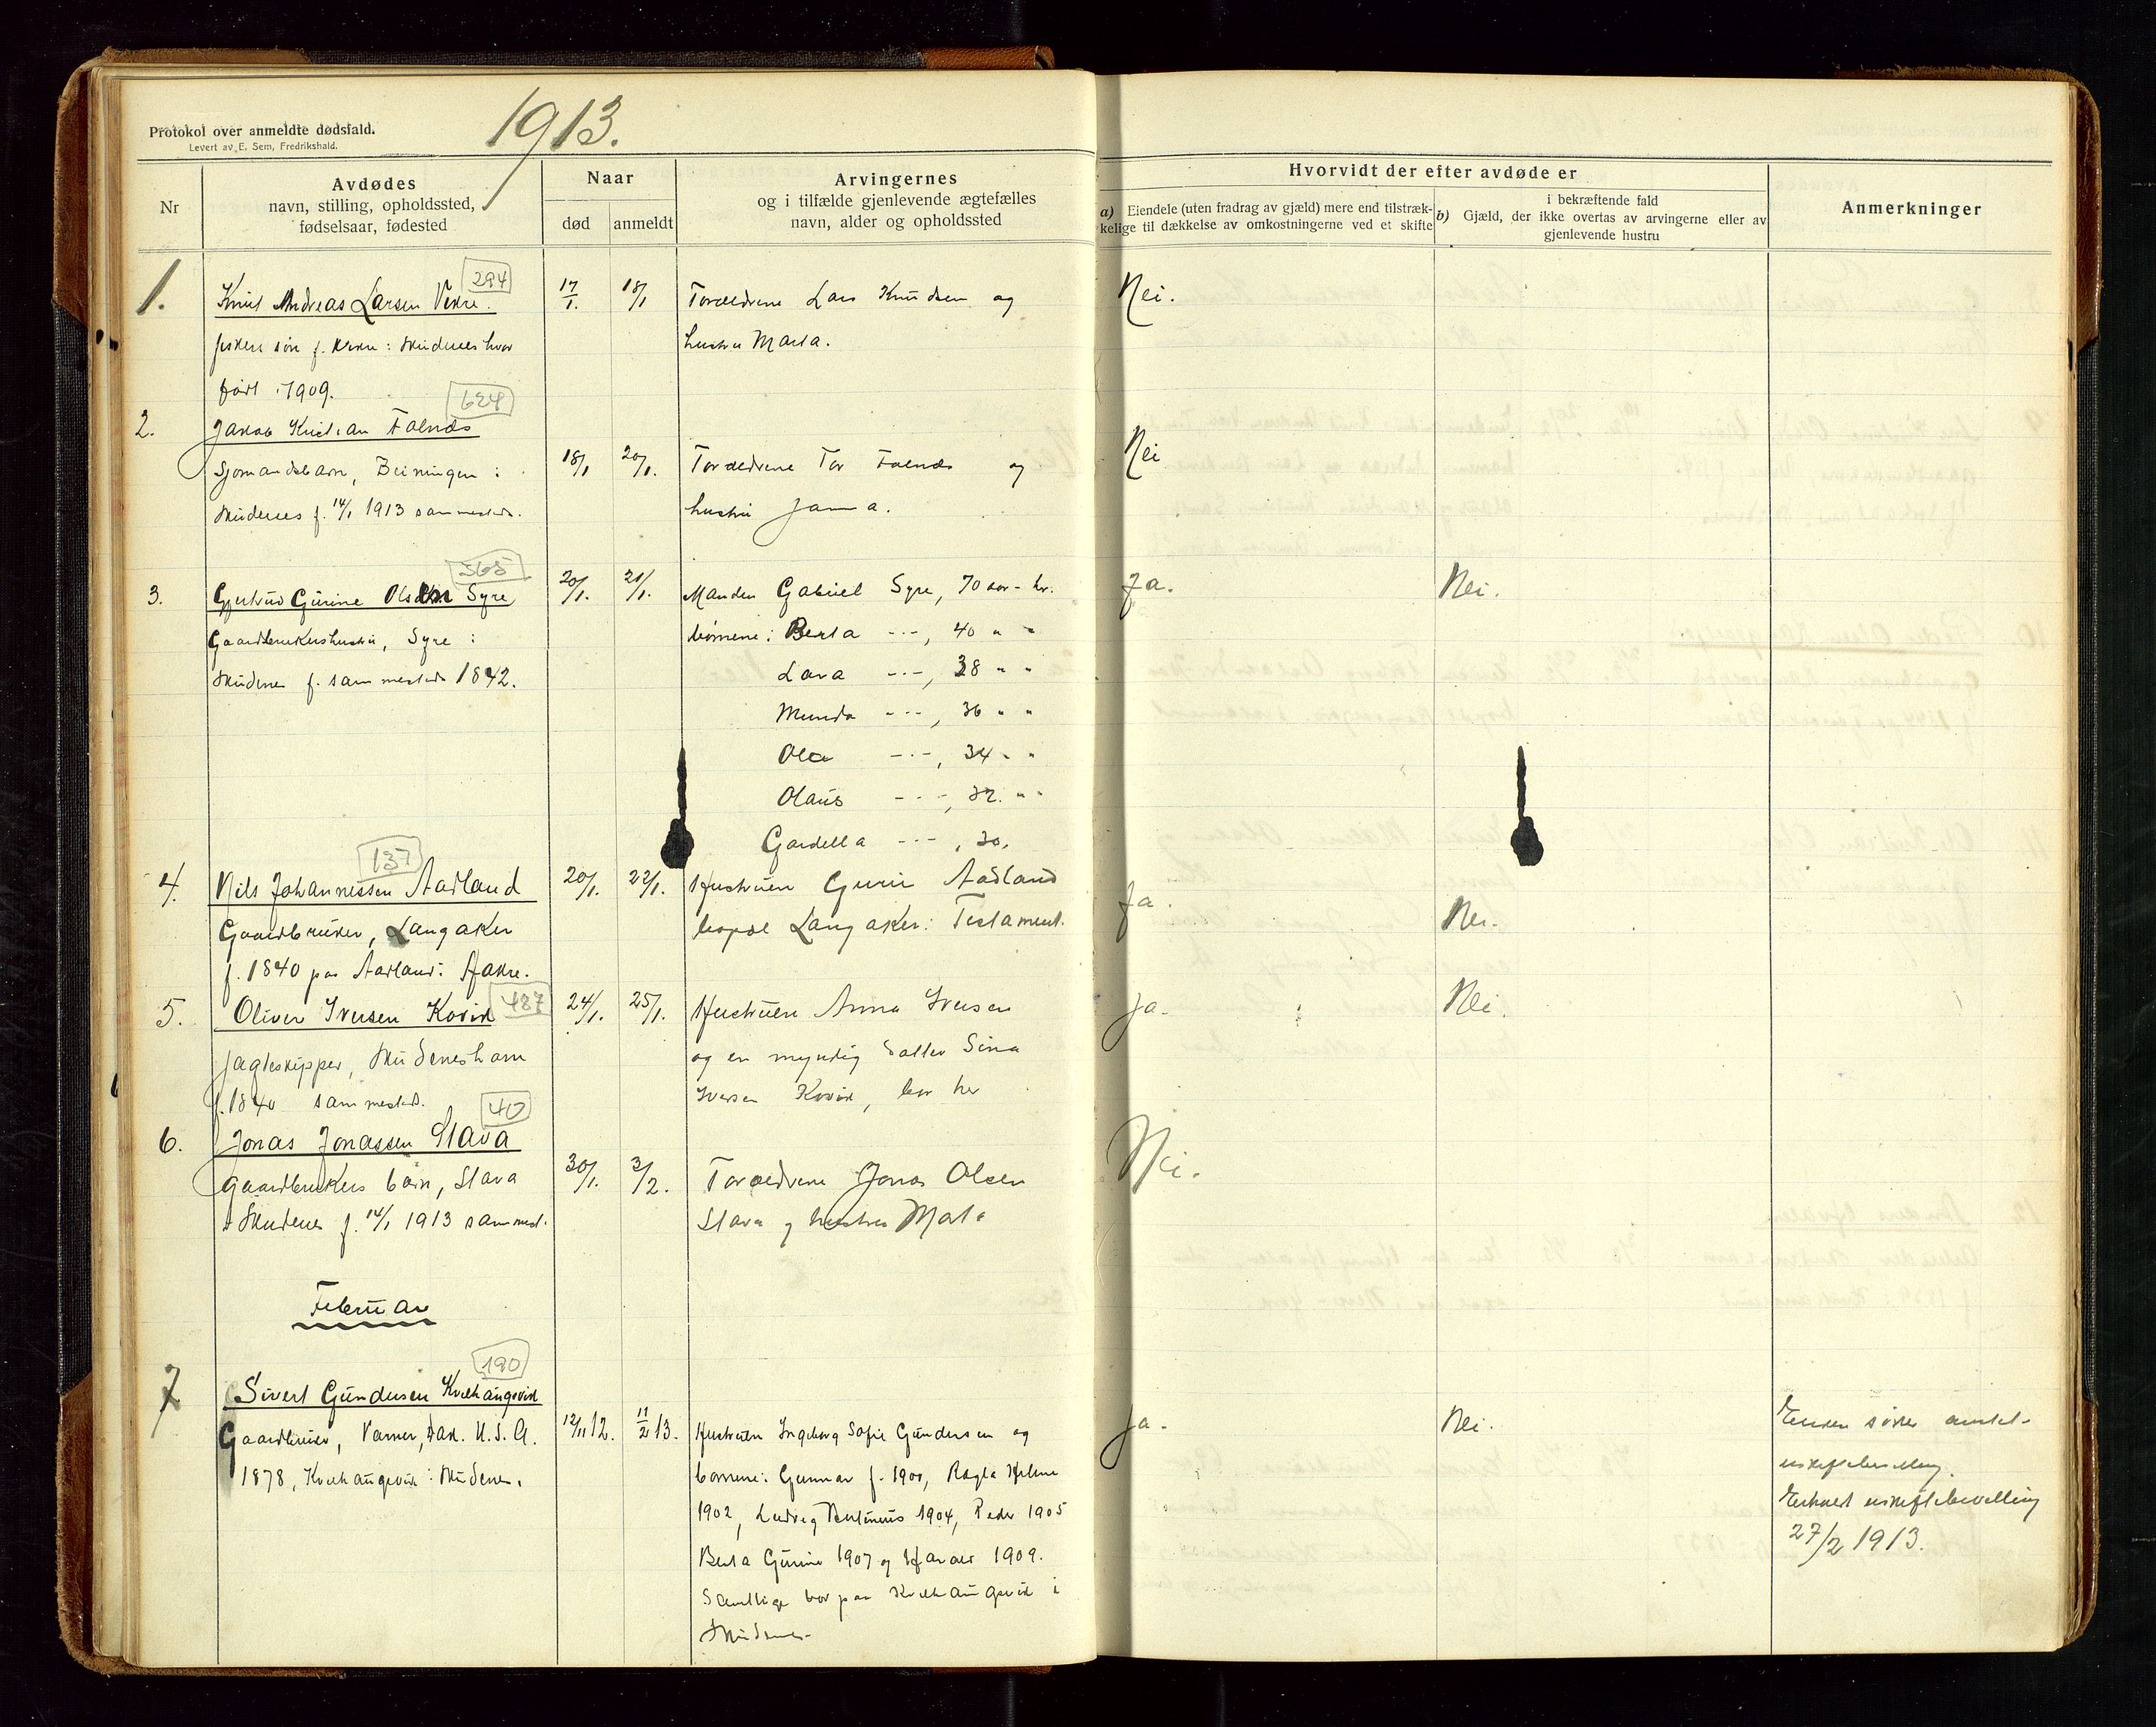 Protokol over anmeldte dødsfald.
Levert av E. Sem, Fredrikshald.
1913.
Nr
Avdødes
navn, stilling, opholdssted,
fødselsaar, fødested
Naar
død
anmeldt
Arvingernes
og i tilfælde gjenlevende ægtefælles
navn, alder og opholdssted
Hvorvidt der efter avdøde er
a) Eiendele (uten fradrag av gjæld) mere end tilstræk-
kelige til dækkelse av omkostningerne ved et skifte
i bekræftende fald
b) Gjæld, der ikke overtas av arvingerne eller av
gjenlevende hustru
Anmerkninger
294
1. Knut Andreas Larsen 17/1. 18/1 Forældrene Lars Knudsen og Nei.
søn f. : Skudenes hvor hustru Marta.
født i 1909.
624
2. Jakob Kristian Falnæs
Sjømandsbarn, Beiningen i 18/1 20/1. Forældrene Tor Falnæs og Nei
Skudenes f. 14/1 1913 sammesteds. hustru Janna.
565
3. Gjertrud Gurine Olsen Syre 20/1. 21/1. Manden Gabriel Syre, 70 aar - her. Ja. Nei.
Gaardbrukershustru, Syre i børnene: Berta -·-, 40 " "
Skudenes f. sammesteds 1842. Lava -·-, 38 " "
Munda -·-, 36 " "
Ole -·-, 34 " "
Olaus -·-, 32. " "
Gardella -·-, 30.
137
4. Nils Johannessen Aadland 20/1. 22/1. Hustruen Guri Aadland Ja.
Gaardbruker, Langaker bopæl Langaker: Testament. Nei.
f. 1840 paa Aadland:
5. Oliver Iversen Kovik 487 24/1. 25/1. Hustruen Anna Iversen Ja. Nei.
Jagteskipper, Skudeneshavn og en myndig datter Sina
f. 1840 sammesteds. Iversen Kovik, bor her
40
6. Jonas Jonassen Stava
Gaardbrukers barn, Stava 30/1. 3/2. Forældrene Jonas Olsen Nei.
i Skudenes f. 14/1 1913 sammest. Stava og hustru Marta
Februar
190
7 Sivert Gundersen Kvalhaugsvik
Gaardbruker, Varner, Dak. U.S.A. 12/11 12. 11/2 13. Hustruen Ingeborg Sofie Gundersen og Ja. Nei. Enken søker amtet
1878, Kvalhaugsvik i Skudenes. børnene: Gunnar f. 1900, Helene
1902, Ludvig 1904, Peder 1905 Erholdt uskiftebevilling
Berta Gurine 1907 og Harald 1909. 27/2 1913.
Samtlige bor paa Kvalhaugsvik i
Skudenes